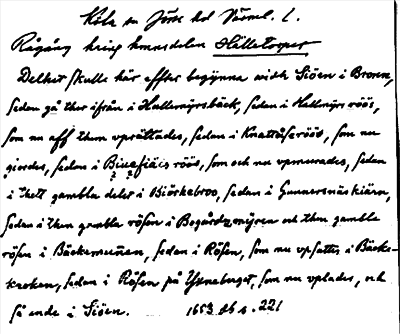 Köla sn Jösse hd Värml. l.
Rågång kring hemmedelen Hälletorper
Delhet skulle här effter begÿnna widh Siöen i Bronen,
sedan gå ther ifrån i Hultemÿrsbäck, sedan i Hultmÿr röös,
som nu aff them uprättades, sedan i Knattåseröös, som nu
giordes, sedan i röös, som och nu upmurades, sedan
i thett gambla delet i Biörkebroo, sedan i Gunnersnäs kiärn,
sedan i then gambla rösen i Bogårdzmÿren och then gamble
rösen i Bäckemunen, sedan i Rösen, som nu upsattes i Bäcke-
kroken, sedan i Rösen på Yteneburget, som nu uplades, och
så ende i Siöen. 1653 db s. 221